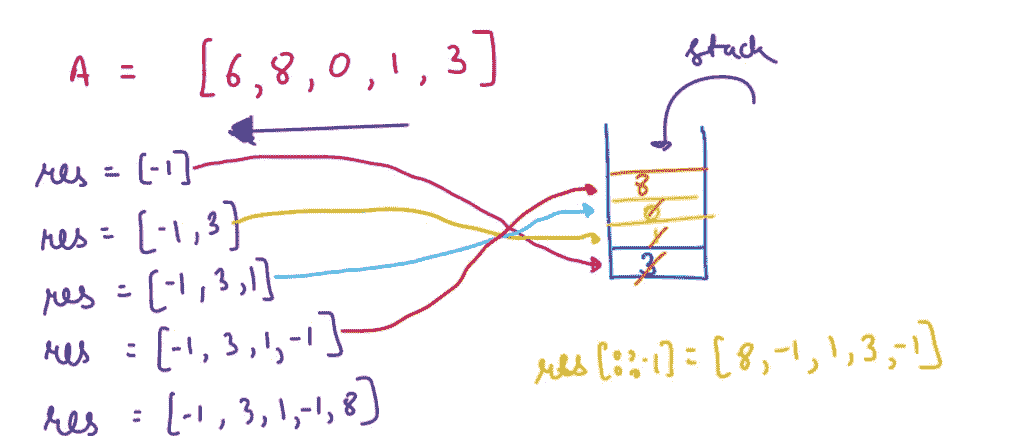 A = [6, 8, 0, 1, 3]
stack
res = [-1]
res = [-1, 3]
res = [-1, 3, 1]
res = [-1, 3, 1, -1]
res = [-1, 3, 1, -1, 8]
8
0
1
3
res[::-1] = [8, -1, 1, 3, -1]